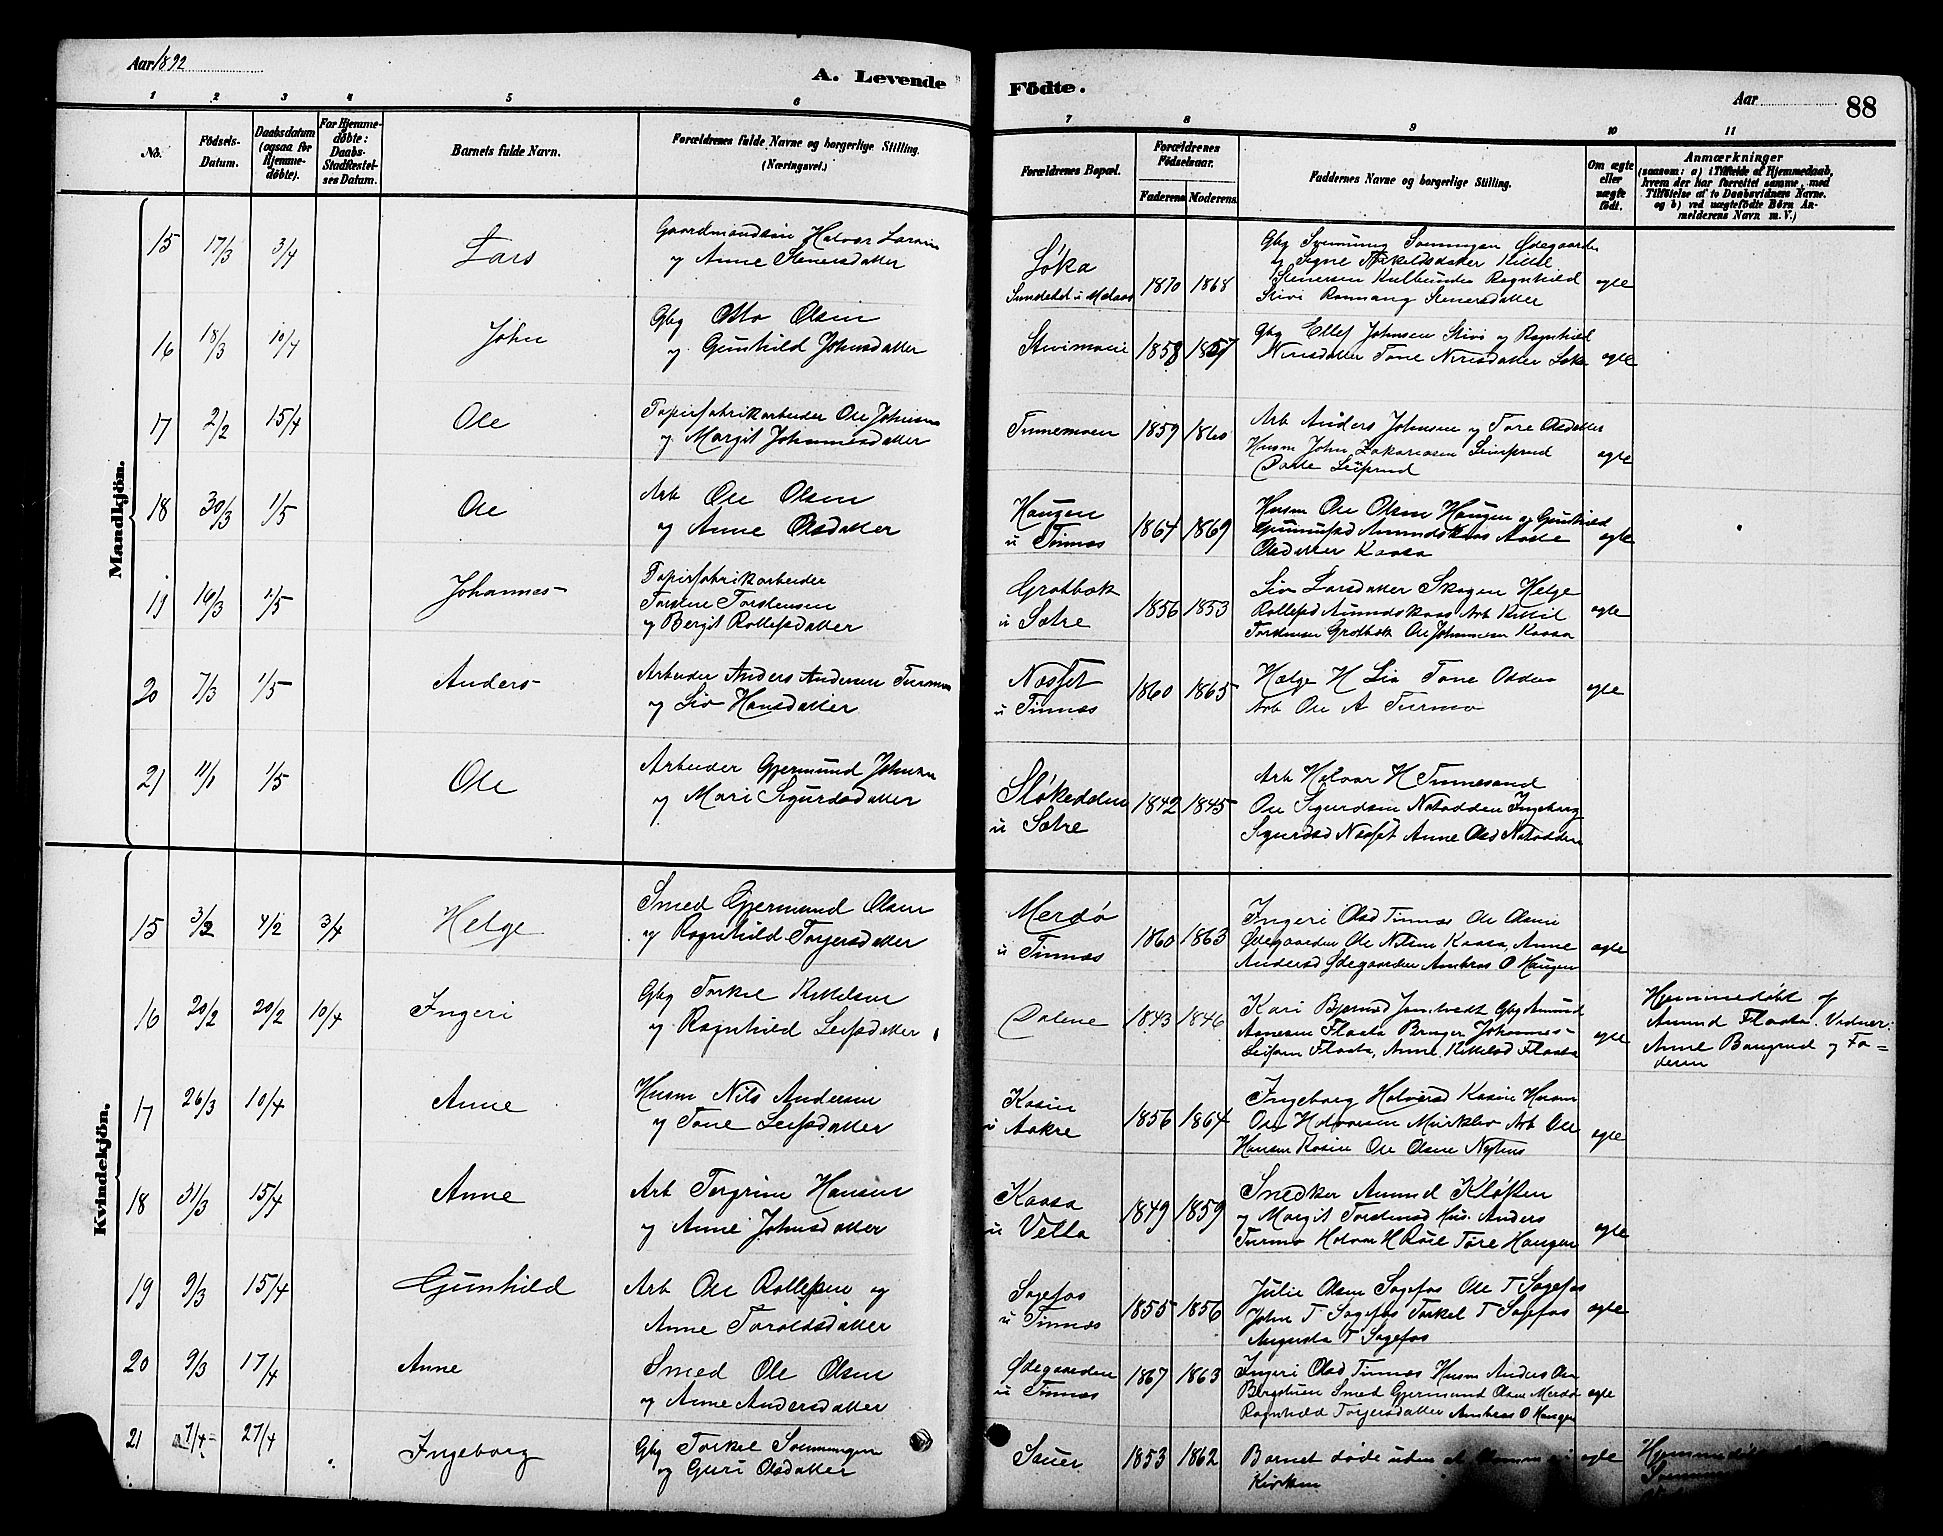 Aar 1892
A. Levende
Födte.
Aar
88
1 2 3 4 5 6
7 8 9 10 11
No.
Födsels-
Datum.
Daabsdatum
(ogsaa for
Hjemme-
döbte).
For Hjemme-
döbte:
Daabs-
Stadfæstel-
ses Datum.
Barnets fulde Navn.
Forældrenes fulde Navne og borgerlige Stilling.
(Næringsvei.)
Forældrenes Bopæl.
Forældrenes
Födselsaar.
Faderens. Moderens.
Faddernes Navne og borgerlige Stilling.
Om ægte
eller
uægte
födt.
Anmærkninger
(saasom: a) i Tilfælde af Hjemmedaab,
hvem der har forrettet samme, med
Tilföielse af to Daabsvidners Navne.
og b) ved uægtefödte Börn An-
melderens Navn m. V.)
Mandkjön.
15 17/3 3/4 Lars
Halvor Larsen
og Anne Stenersdatter
Løka
1870 1868
ægte
16 18/3 10/4 John
Gbg Otto Olsen
og Gunhild Johnsdatter
Stivimoen 1858 1857
Gbg Ellef Johnsen Stivi og Ragnhild
Nirisdatter Tone Nirisdatter Løka
ægte
17 2/2 15/4 Ole
Papirfabrikarbeider Ole Johnsen
og Margit Johannesdatter
Tinnemoen 1859 1860
Arb Anders Johnsen og Tore Olsdatter
Husm John Zakariasen
ægte
18 30/3 1/5 Ole
Arb Ole Olsen
og Anne Olsdatter
Haugen
u Tinnæs
1864 1869
Husm Ole Olsen Haugen og Gunhild
Olsdatter Kaasa
ægte
19 16/3 1/5 Johannes
Papirfabrikarbeider
Torsten Torstensen
og Bergit Rollefsdatter
Grotbæk
u Sætre
1856 1853
Liv Larsdatter Skogen Helge
Rollefsd Amundskaas Arb Kittil
Torstensen Grotbæk Ole Johannesen Kaasa
ægte
20 7/3 1/5 Anders
Arbeider Anders Andersen Turmo
og Liv Hansdatter
Næsset
u Tinnæs
1860 1865
Helge H Liv Tone
Arb Ole A Turmo
ægte
21 11/1 1/5 Ole
Arbeider Gjermund Johnsen
og Mari Sigurdsdatter
Sløkedden
u Sætre
1842 1845
Arb Halvor H Tinnesand
Ole Sigurdsen Notodden Ingeborg
Sigurdsd Næsset Anne Olsd Notodden
Kvindekjön.
15 3/2 4/2 3/4 Helge
Smed Gjermund Olsen
og Ragnhild Torjersdatter
Merdø
u Tinnæs
1860 1863
Ingeri Olsd Tinnæs Ole Olsen
Ødegaarden Ole Nilsen Kaasa, Anne
Andersd Ødegaarden Ambros O Haugen
ægte
16 20/2 20/2 10/4 Ingeri
Gbg Torkel Kittelsen
og Ragnhild Leifsdatter
Dalene 1843 1846
Kari Bjørnsd Gbg Amund
Aanesen Flaata Bruger Johannes
Leifsen Flaata, Anne Kittelsd Flaata
ægte
Hjemmedøbt af
Amund Flaata. Vidner:
Anne Bangrud og Fa=
deren
17 26/3 10/4 Anne
Husm Nils Andersen
og Tone Leifsdatter
Kasin
u Aakre
1856 1864
Ingeborg Halvorsd Kasin Husm
Ole Halvorsen Mirklev Arb Ole
Hansen Kasin Ole Olsen Nyhus
ægte
18 31/3 15/4 Anne
Arb Torgrim Hansen
og Anne Johnsdatter
Kaasa
u Vella
1849 1859
Snedker Amund Kløften
og Margit Torstensd Hus. Anders
Turmo Halvor H Røse Tore Haugen
ægte
19 9/3 15/4 Gunhild
Arb Ole Rollefsen og
Anne Toroldsdatter
Sagefos
u Tinnæs
1855 1856
Julie Olsen Sagefos Ole T Sagefos
John T Sagefos Torkel T Sagefos
Augusta T Sagefos
ægte
20 9/3 17/4 Anne
Smed Ole Olsen
og Anne Andersdatter
Ødegaarden
u Tinnæs
1867 1863
Ingeri Olsd Tinnæs Husm Anders Ole
Bergstuen Smed Gjermund Olsen Merdø
Ragnhild Torjersdatter Ambros O Haugen
ægte
21 7/4 27/4 Ingeborg
Gbg Torkel Svenningen
og Guri Olsdatter
Sauer 1853 1862
Barnet døde uden at komme i
Kirken
ægte